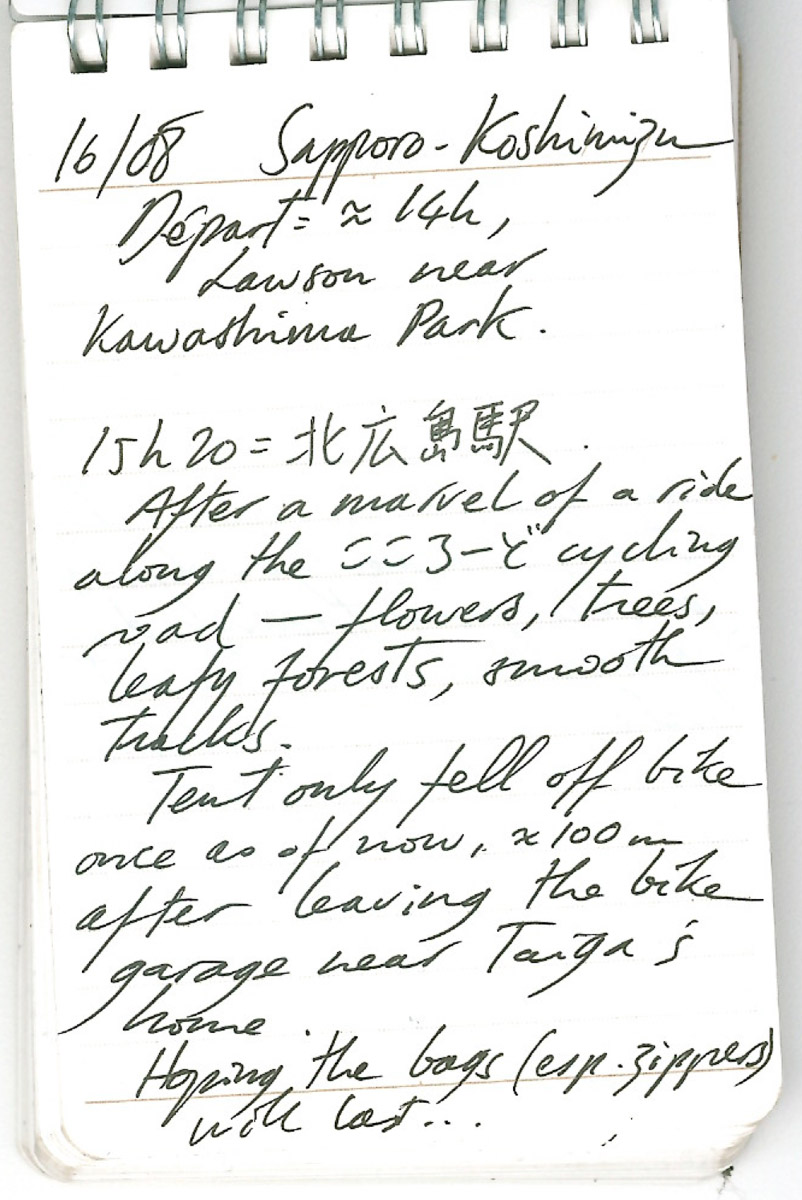 16/08 Sapporo-Koshimizu
Départ = ≈ 14h,
Lawson near
Kawashima Park.
15h20 = 北広島駅.
After a marvel of a ride
along the こころーど cycling
road — flowers, trees,
leafy forests, smooth
tracks.
Tent only fell off bike
once as of now, ≈100m
after leaving the bike
garage near Taiga's
home.
Hoping the bags (esp. zippers)
will last...